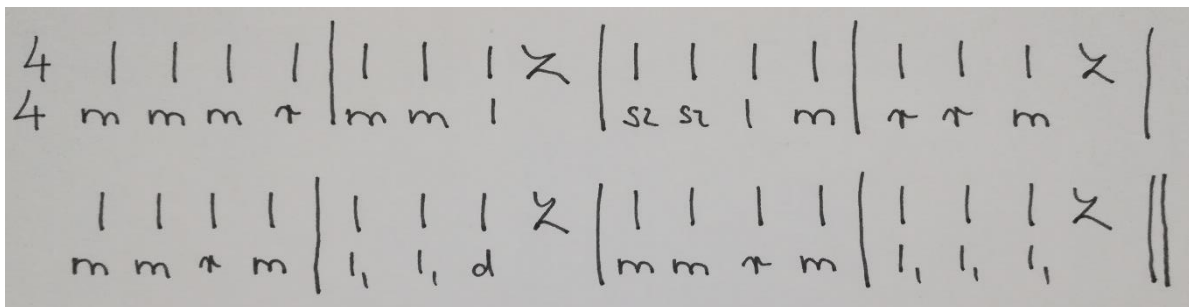 4 | | | | | | | | Z | | | | | | | | Z |
4 m m m r | m m l | sz sz l m | r r m |
| | | | | | | | Z | | | | | | | | Z ||
m m r m | l, l, d | m m r m | l, l, l, ||